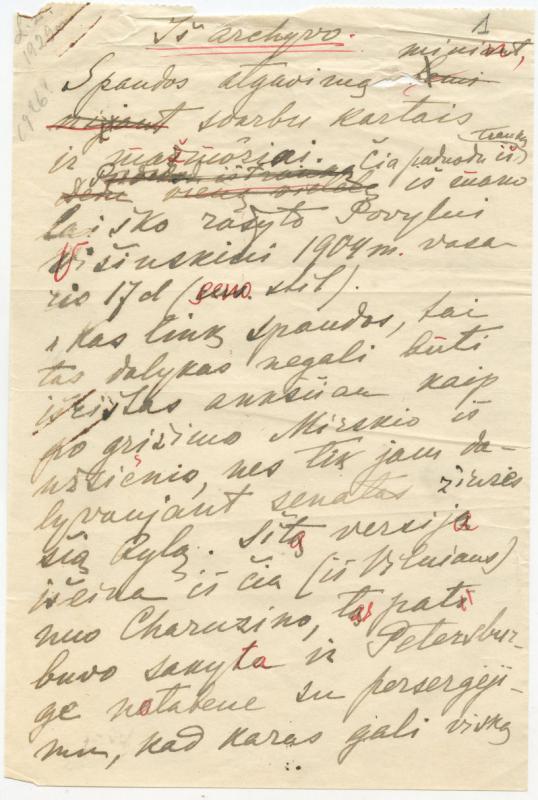 1
Iš archyvo.
Spaudos atgavimą minint,
svarbu kartais
ir mažmožiai. Čia paduodu iš
iš mano
laiško rašyto Povylui
Višinskiui 1904 m. vasa-
rio 17 d (seno stil).
„Kas link spaudos, tai
tas dalykas negali būti
išrištas anksčiau kaip
po grįžimo Mirskio iš
užsienio, nes tik jam da-
lyvaujant senatas žiurės
šią bylą. Šita versija
išeina iš čia (iš Vilniaus)
nuo Charuzino, tas pats
buvo sakyta ir Petersbur-
ge notabene su persergėji-
mu, kad karas gali viską